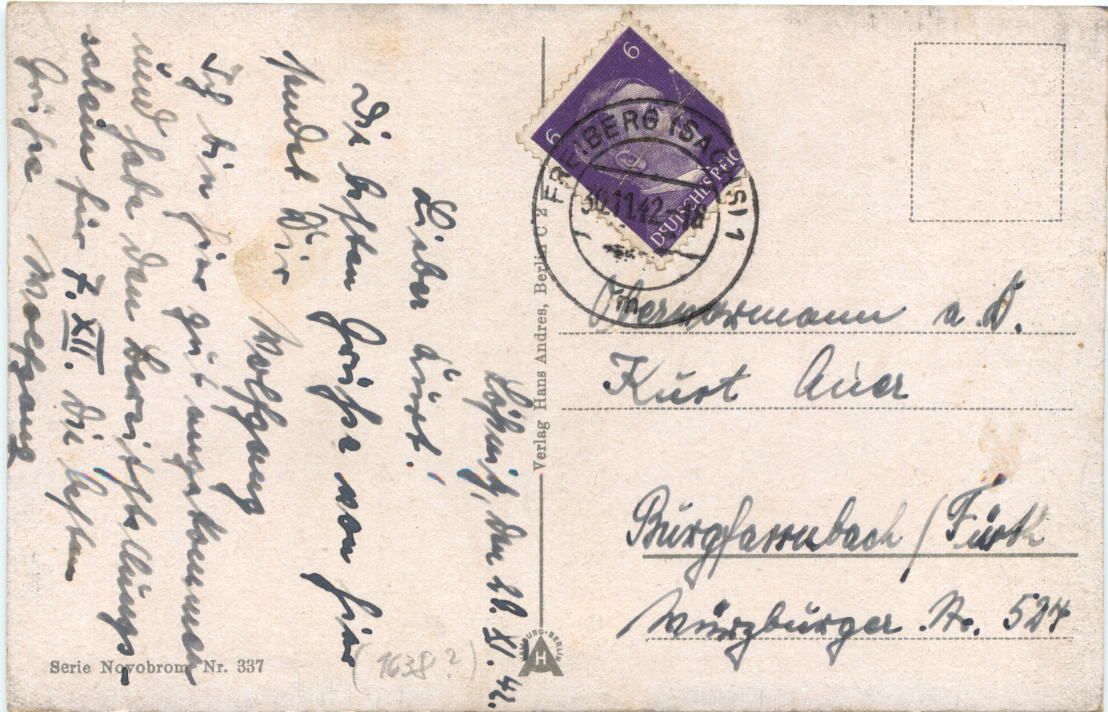 Lößnitz, den 28. XI. 42.
Lieber Kurt!
Die besten Grüße von hier
sendet Dir Wolfgang
Ich bin hier gut angekommen
und habe den Bereitstellungs-
schein für 7. XII. Die besten
Grüße Wolfgang
(1638?)
Serie Novobrom Nr. 337
Verlag Hans Andres, Berlin C 2
HAMBURG-BERLIN
HA
6
6
DEUTSCHES REICH
FREIBERG (SACHS) 1
30.11.42.-18
m
a. D.
Kurt Auer
Burgfarrnbach / Fürth
Würzburger Str. 524